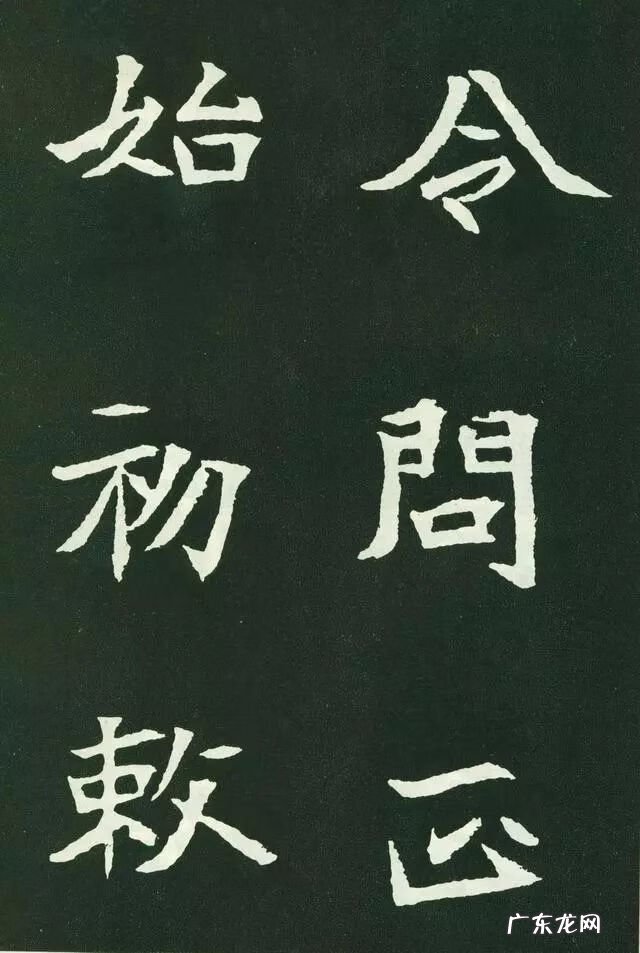 令問正
始初敕
广东龙网